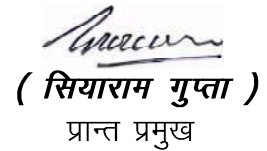 ( सियाराम गुप्ता )
प्रान्त प्रमुख